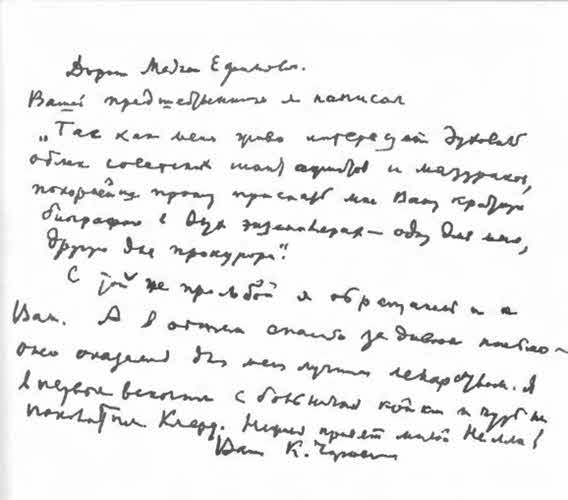 Дорогой Матвей Ефимович.
Вашей предшественнице я написал
„Так как меня живо интересует духовный
облик советских шантажистов и мазуриков,
покорнейше прошу прислать мне Вашу краткую
биографию в двух экземплярах — одну для меня,
другую для прокурора“.
С той же просьбой я обращаюсь и к
Вам. А в остальном спасибо за дивное письмо —
оно оказалось для меня лучшим лекарством. Я
впервые вскочил с больничной койки и чуть не
поколотил Клару. Нежный привет милой Нелли!
Ваш К. Чуковский